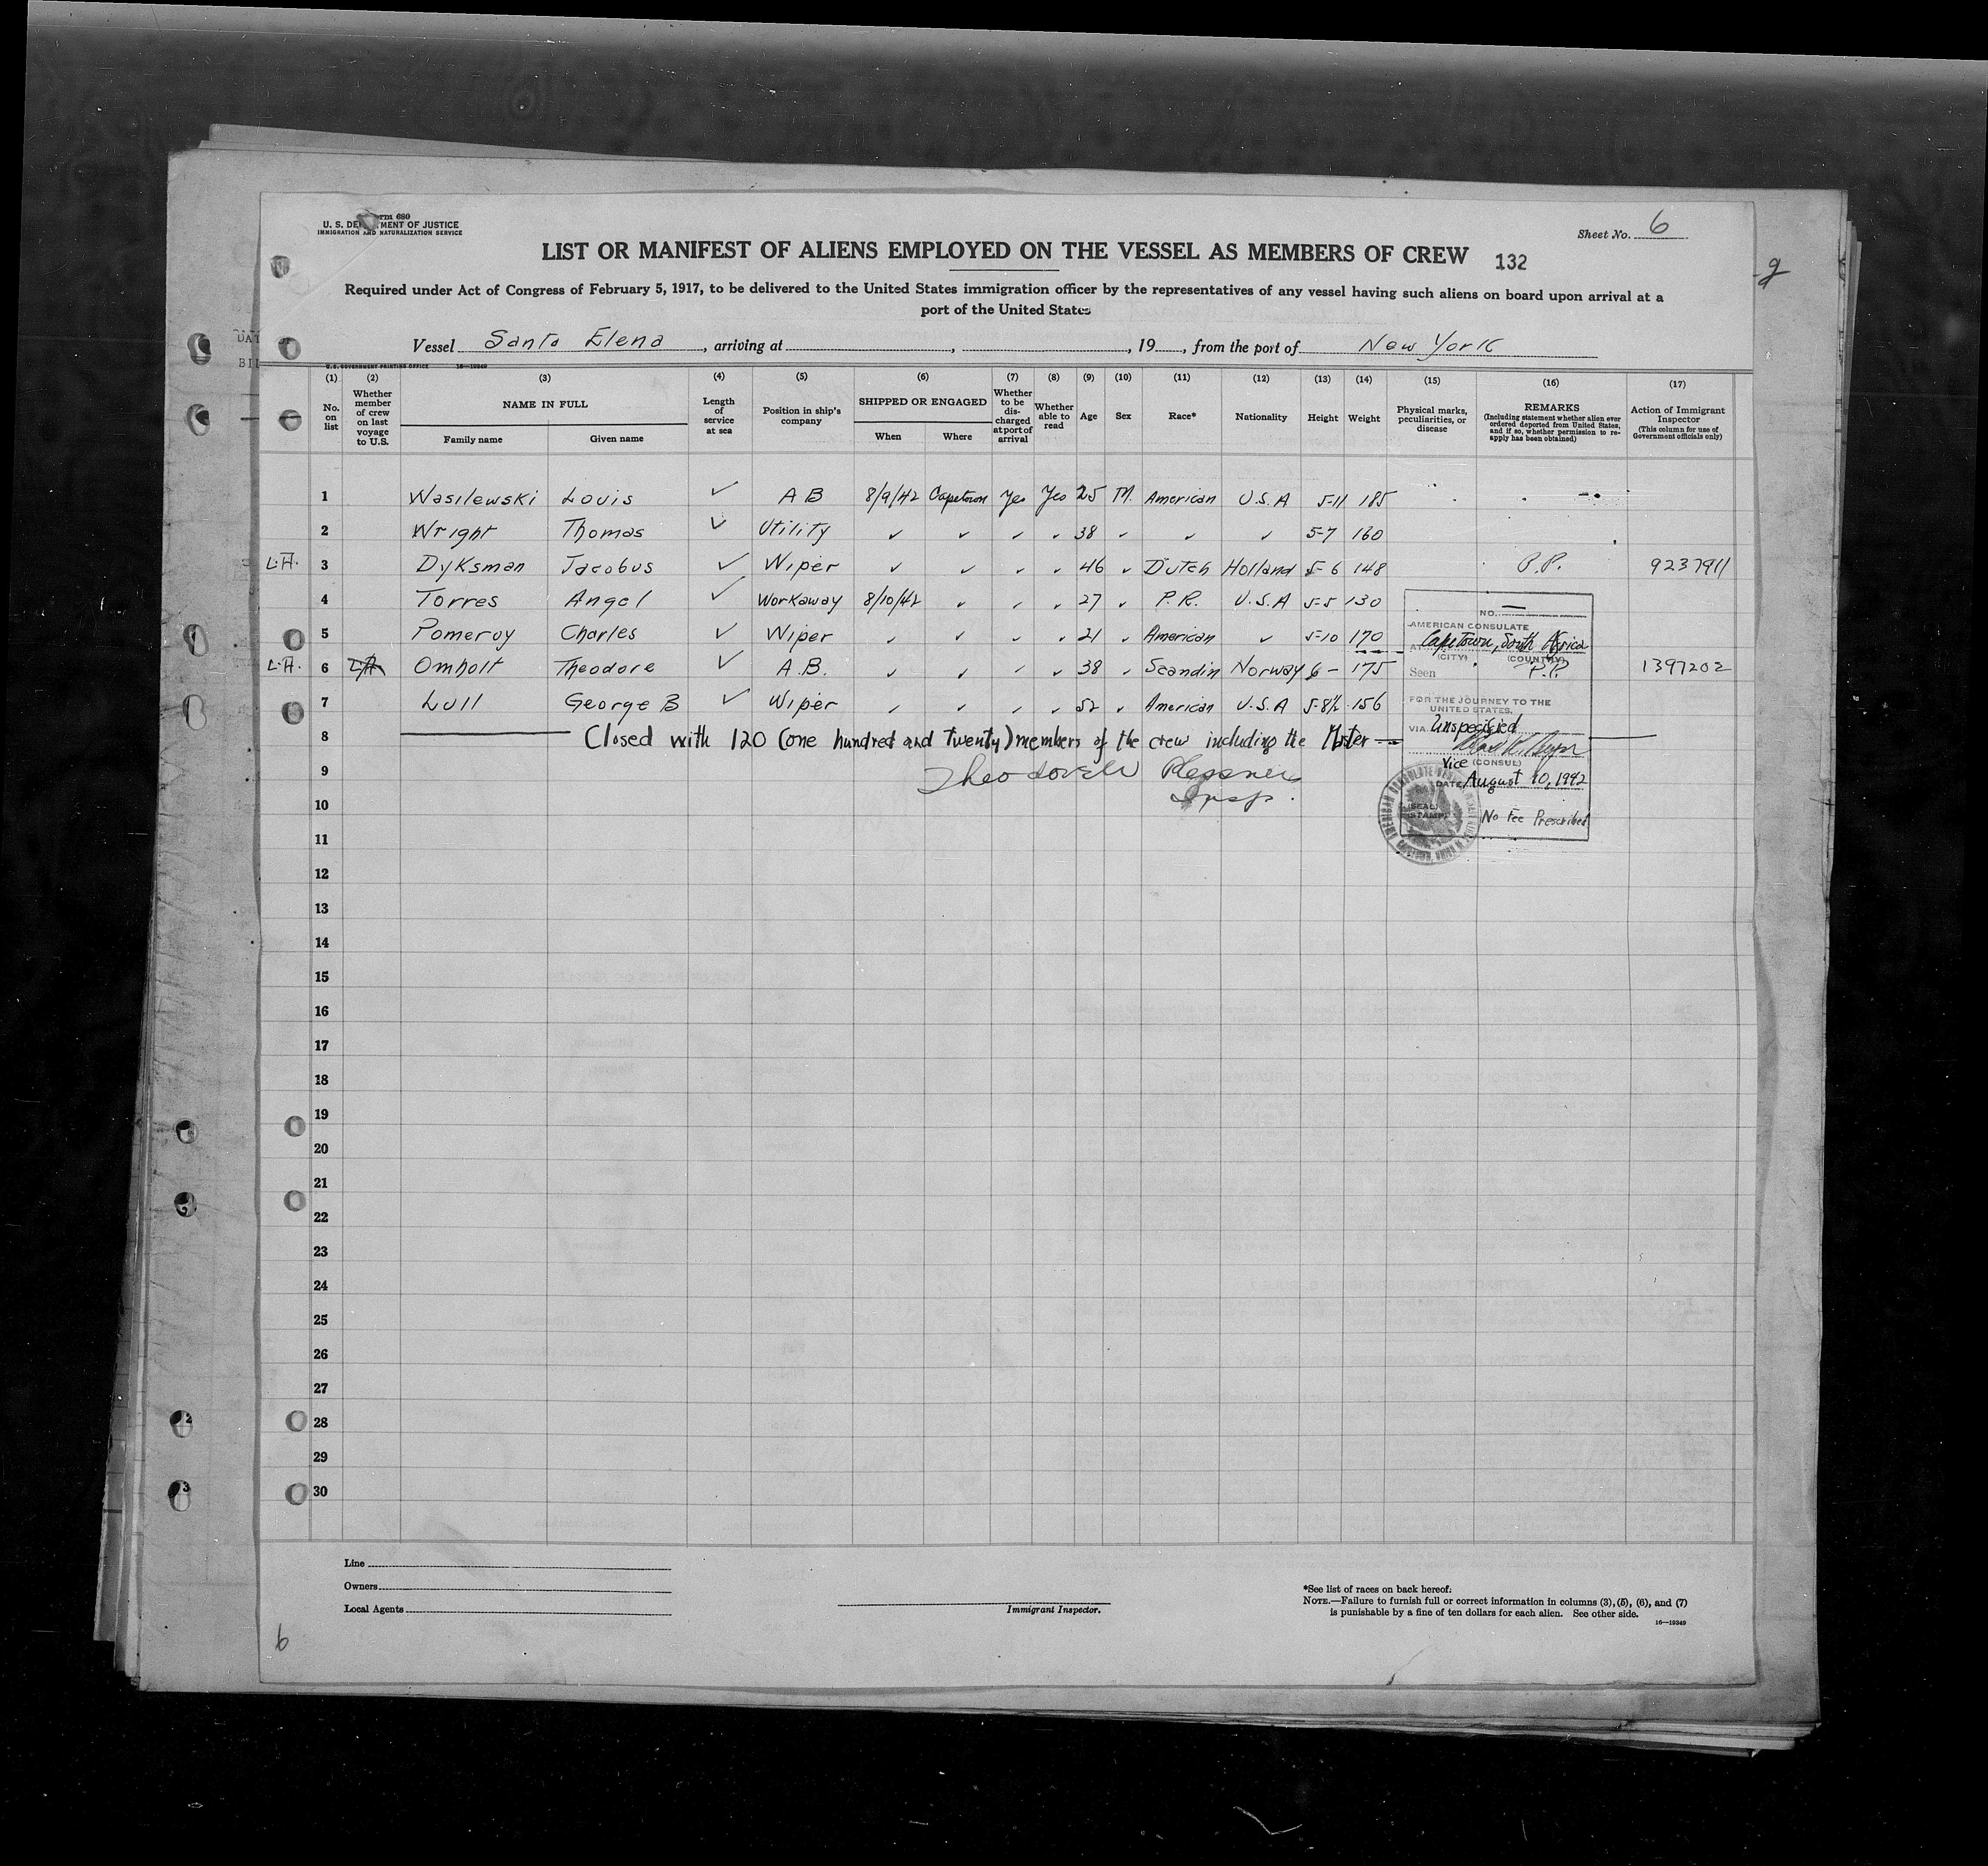 Form 680
U. S. DEPARTMENT OF JUSTICE
IMMIGRATION AND NATURALIZATION SERVICE
Sheet No. 6
LIST OR MANIFEST OF ALIENS EMPLOYED ON THE VESSEL AS MEMBERS OF CREW 132
Required under Act of Congress of February 5, 1917, to be delivered to the United States immigration officer by the representatives of any vessel having such aliens on board upon arrival at a
port of the United States
Vessel Santa Elena, arriving at , , 19 , from the port of New York
U.S. GOVERNMENT PRINTING OFFICE 16—19349
(1) (2) (3) (4) (5) (6) (7) (8) (9) (10) (11) (12) (13) (14) (15) (16) (17)
No. on list
Whether member of crew on last voyage to U.S.
NAME IN FULL
Family name Given name
Length of service at sea
Position in ship's company
SHIPPED OR ENGAGED
When Where
Whether to be discharged at port of arrival
Whether able to read
Age Sex Race* Nationality Height Weight
Physical marks, peculiarities, or disease
REMARKS
(Including statement whether alien ever ordered deported from United States, and if so, whether permission to re-apply has been obtained)
Action of Immigrant Inspector
(This column for use of Government officials only)
1 Wasilewski Louis ✓ A B 8/9/42 Capetown Yes Yes 25 M. American U.S.A 5-11 185
2 Wright Thomas ✓ Utility ✓ ✓ ✓ ✓ 38 ✓ ✓ ✓ 5-7 160
L.H. 3 Dyksman Jacobus ✓ Wiper ✓ ✓ ✓ ✓ 46 ✓ Dutch Holland 5-6 148 P.P. 9237911
4 Torres Angel ✓ Workaway 8/10/42 ✓ ✓ ✓ 27 ✓ P.R. U.S.A 5-5 130
5 Pomeroy Charles ✓ Wiper ✓ ✓ ✓ ✓ 21 ✓ American ✓ 5-10 170
L.H. 6 Omholt Theodore ✓ A.B. ✓ ✓ ✓ ✓ 38 ✓ Scandin Norway 6- 175 P.P. 1397202
7 Lull George B ✓ Wiper ✓ ✓ ✓ ✓ 52 ✓ American U.S.A 5-8½ 156
8 Closed with 120 (one hundred and twenty) members of the crew including the Master
9 Theodore
10 Insp.
NO. —
AMERICAN CONSULATE
AT Capetown, South Africa
(CITY) (COUNTRY)
Seen
FOR THE JOURNEY TO THE
UNITED STATES,
VIA Unspecified
Vice (CONSUL)
DATE August 10, 1942
(SEAL)
(STAMP)
No Fee Prescribed
11
12
13
14
15
16
17
18
19
20
21
22
23
24
25
26
27
28
29
30
Line
Owners
Local Agents
Immigrant Inspector.
*See list of races on back hereof.
NOTE.—Failure to furnish full or correct information in columns (3), (5), (6), and (7)
is punishable by a fine of ten dollars for each alien. See other side.
16—19349
6